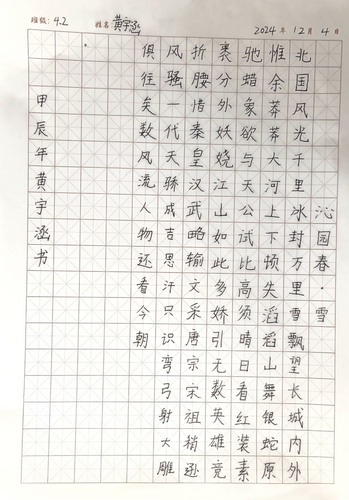 班级: 4.2 姓名 黄宇涵 2024 年 12 月 4 日
沁园春·雪
北国风光千里冰封万里雪飘望长城内外
惟余莽莽大河上下顿失滔滔山舞银蛇原
驰蜡象欲与天公试比高须晴日看红装素
裹分外妖娆江山如此多娇引无数英雄竞
折腰惜秦皇汉武略输文采唐宗宋祖稍逊
风骚一代天骄成吉思汗只识弯弓射大雕
俱往矣数风流人物还看今朝
甲辰年黄宇涵书